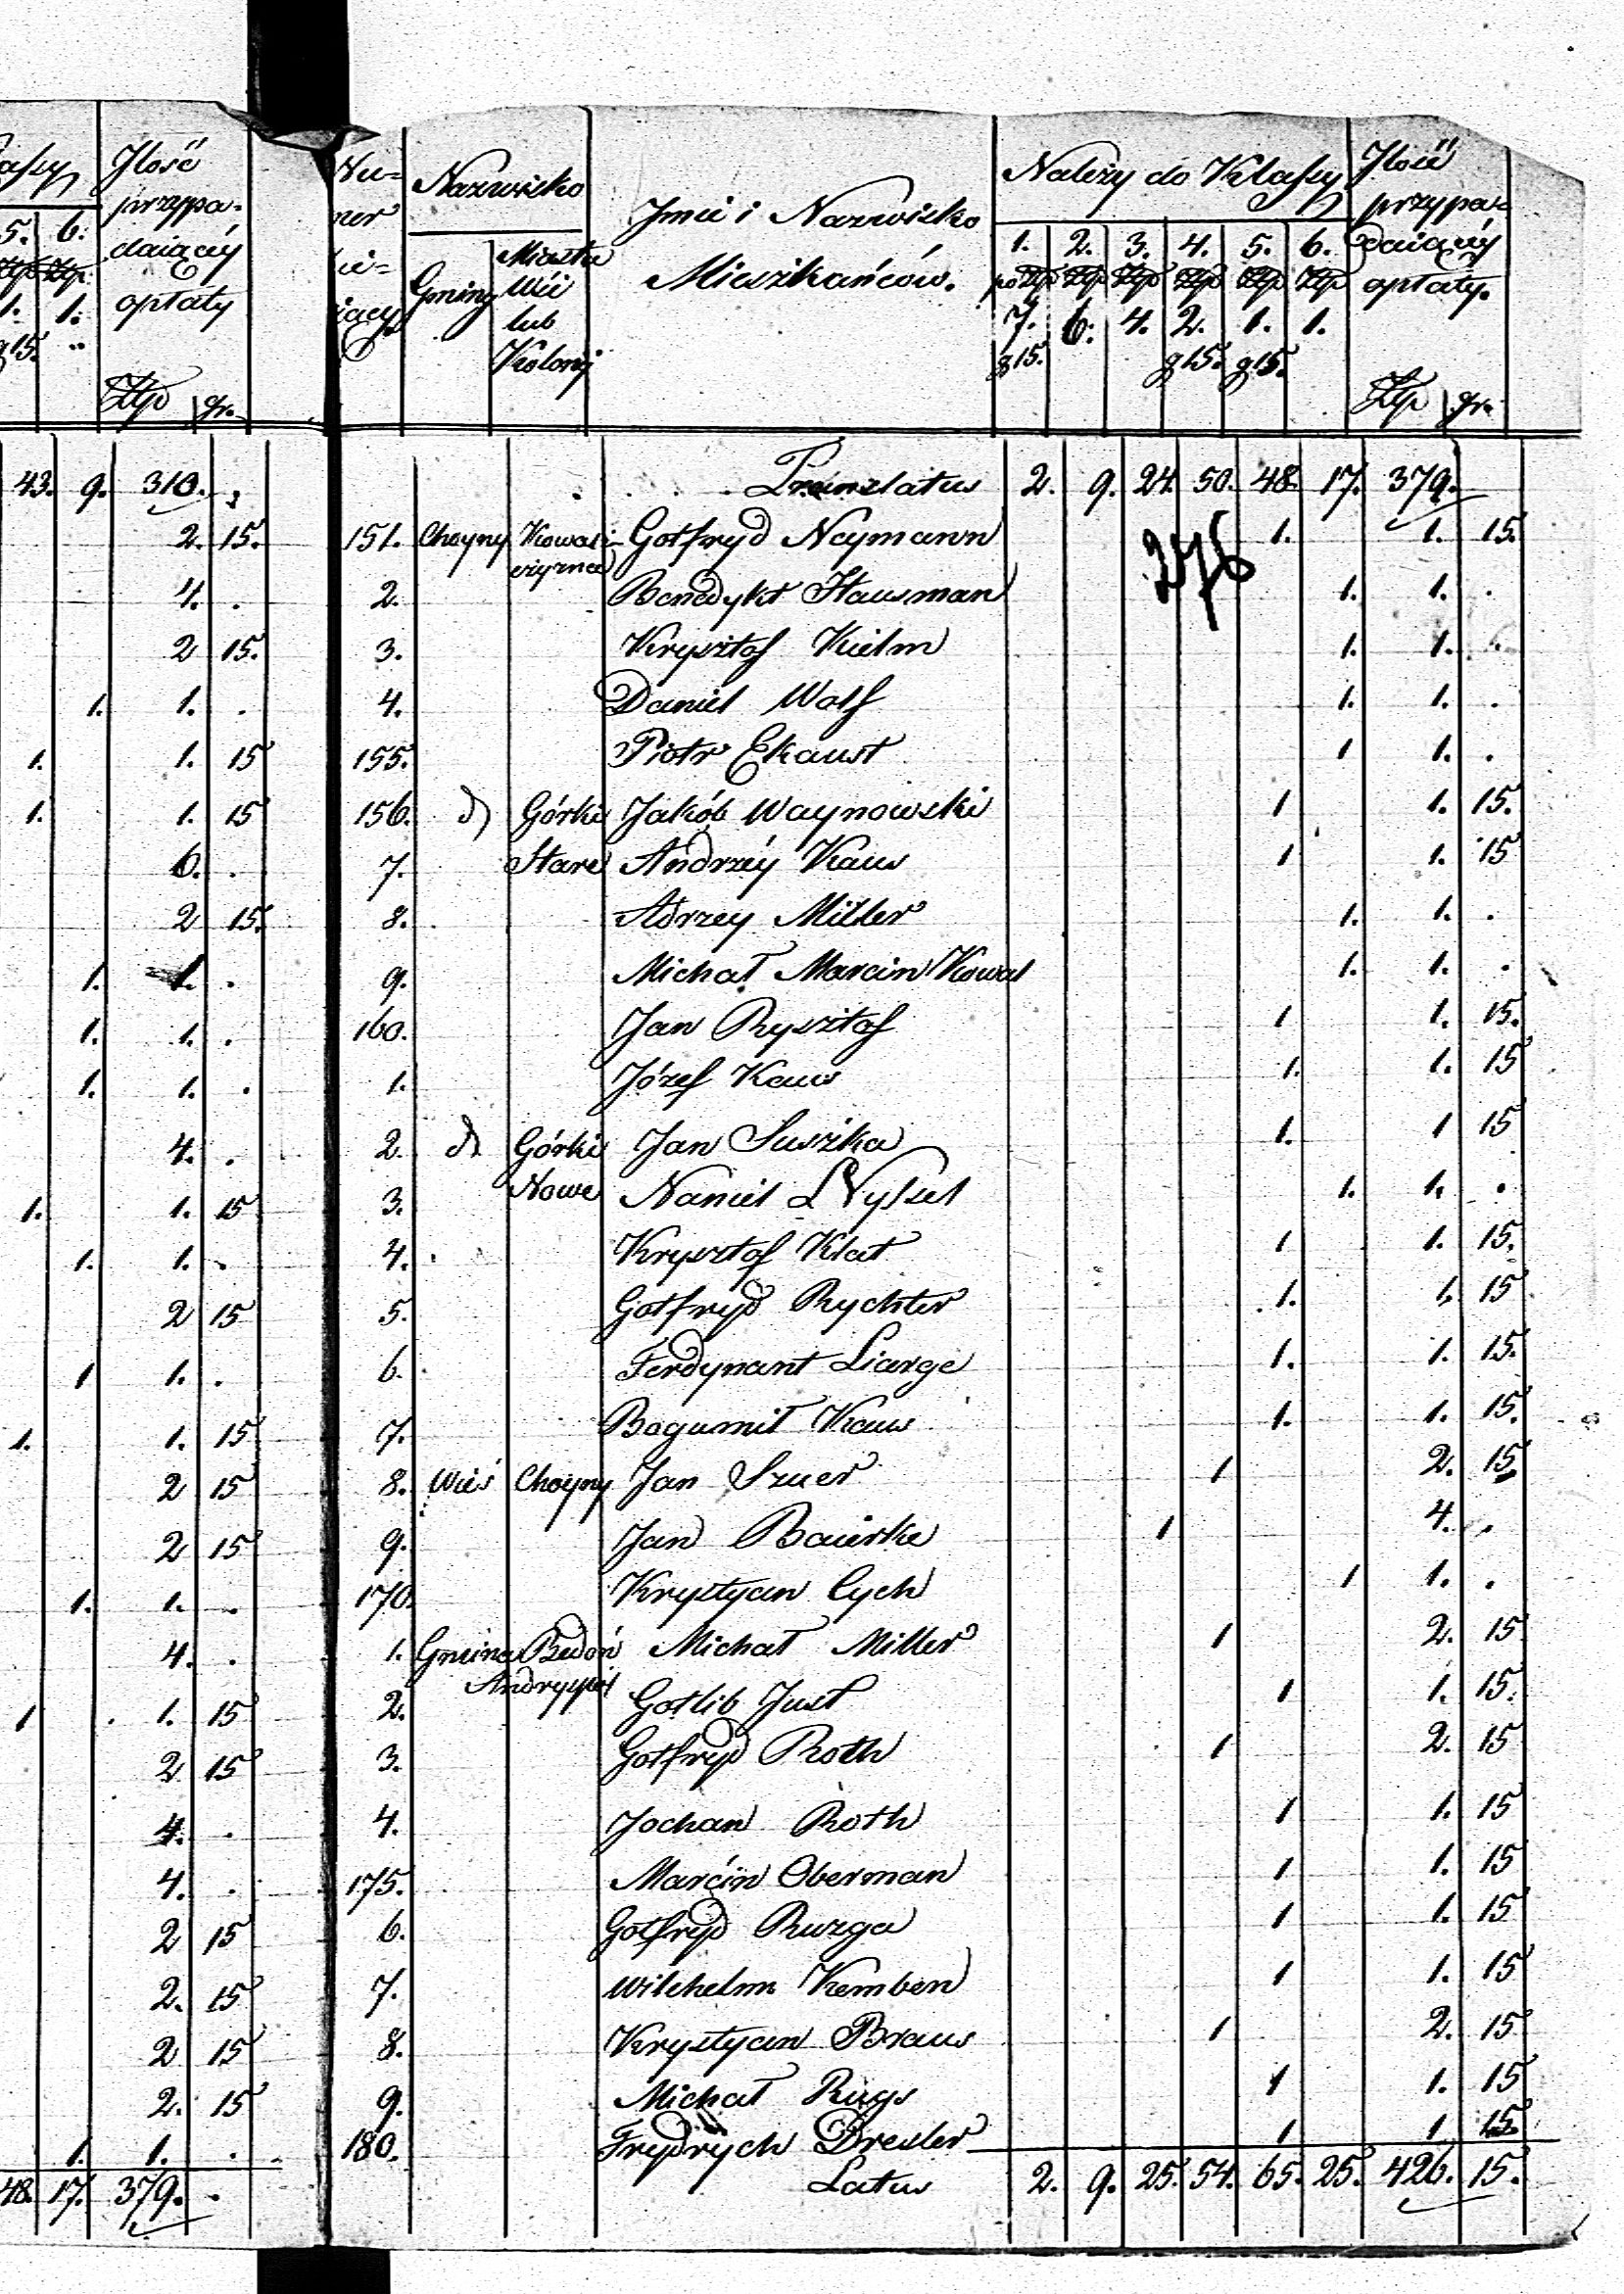 5. 6.
1. 1.
g 15. "
Ilość
przypa-
daiącéy
opłaty
Złp gr.
43. 9. 310.
2. 15.
4. .
2 15.
1. 1. .
1. 1. 15
1. 1. 15
6. .
2 15.
1. 1. .
1. 1. .
1. 1. .
4. .
1. 1. 15
1. 1. .
2 15
1 1. .
1. 1. 15
2 15
2 15
1. 1. .
4. .
1 1. 15
2 15
4. .
4. .
2 15
2. 15
2 15
2. 15
1. 1. .
48. 17. 379. .
Nu-
mer
Nazwisko
Gminy
Miasta
Wsi
lub
Kolonij
Imie i Nazwisko
Mieszkańców.
Należy do Klassy
1. 2. 3. 4. 5. 6.
po Złp Złp Złp Złp Złp Złp
7. 6. 4. 2. 1. 1.
g 15. g 15. g 15.
Ilość
przypa-
daiącéy
opłaty.
Złp gr.
Translatus 2. 9. 24. 50. 48. 17. 379.
276
151. Choyny Kowal- Gotfryd Naymann 1. 1. 15.
szyzna
2. Benedykt Hausman 1. 1. .
3. Krysztof Kielm 1. 1. .
4. Daniel Wolf 1. 1. .
155. Piotr Ekaust 1 1. .
156. d Górki Jakób Waynowski 1 1. 15.
7. Stare Andrzéy Kaus 1 1. 15
8. Adrzey Miller 1. 1. .
9. Michał Marcin Kowal 1. 1. .
160. Jan Rysztof 1 1. 15.
1. Józef Kaus 1. 1. 15
2. d Górki Jan Suszka 1. 1 15
3. Nowe Naniel 1. 1. .
4. Krysztof Klat 1 1. 15.
5. Gotfryd Rychter 1. 1. 15
6. Ferdynant Liarge 1. 1. 15.
7. Bogumił Kaus 1. 1. 15.
8. Wieś Choyny Jan Szuer 1 2. 15
9. Jan Bairke 1 4. .
170. Krystyan Cych 1 1. .
1. Gmina Bedoń Michał Miller 1 2. 15
Andryspol
2. Gotlib Just 1 1. 15.
3. Gotfryd Roth 1 2. 15
4. Jochan Roth 1 1. 15
175. Marcin Oberman 1 1. 15
6. Gotfryd Ruzga 1 1. 15
7. Wilchelm Kemben 1 1. 15
8. Krystyan Braus 1 2. 15
9. Michał Rugs 1 1. 15
180. Frydrych Dresler 1 1 15
Latus 2. 9. 25. 54. 65. 25. 426. 15.